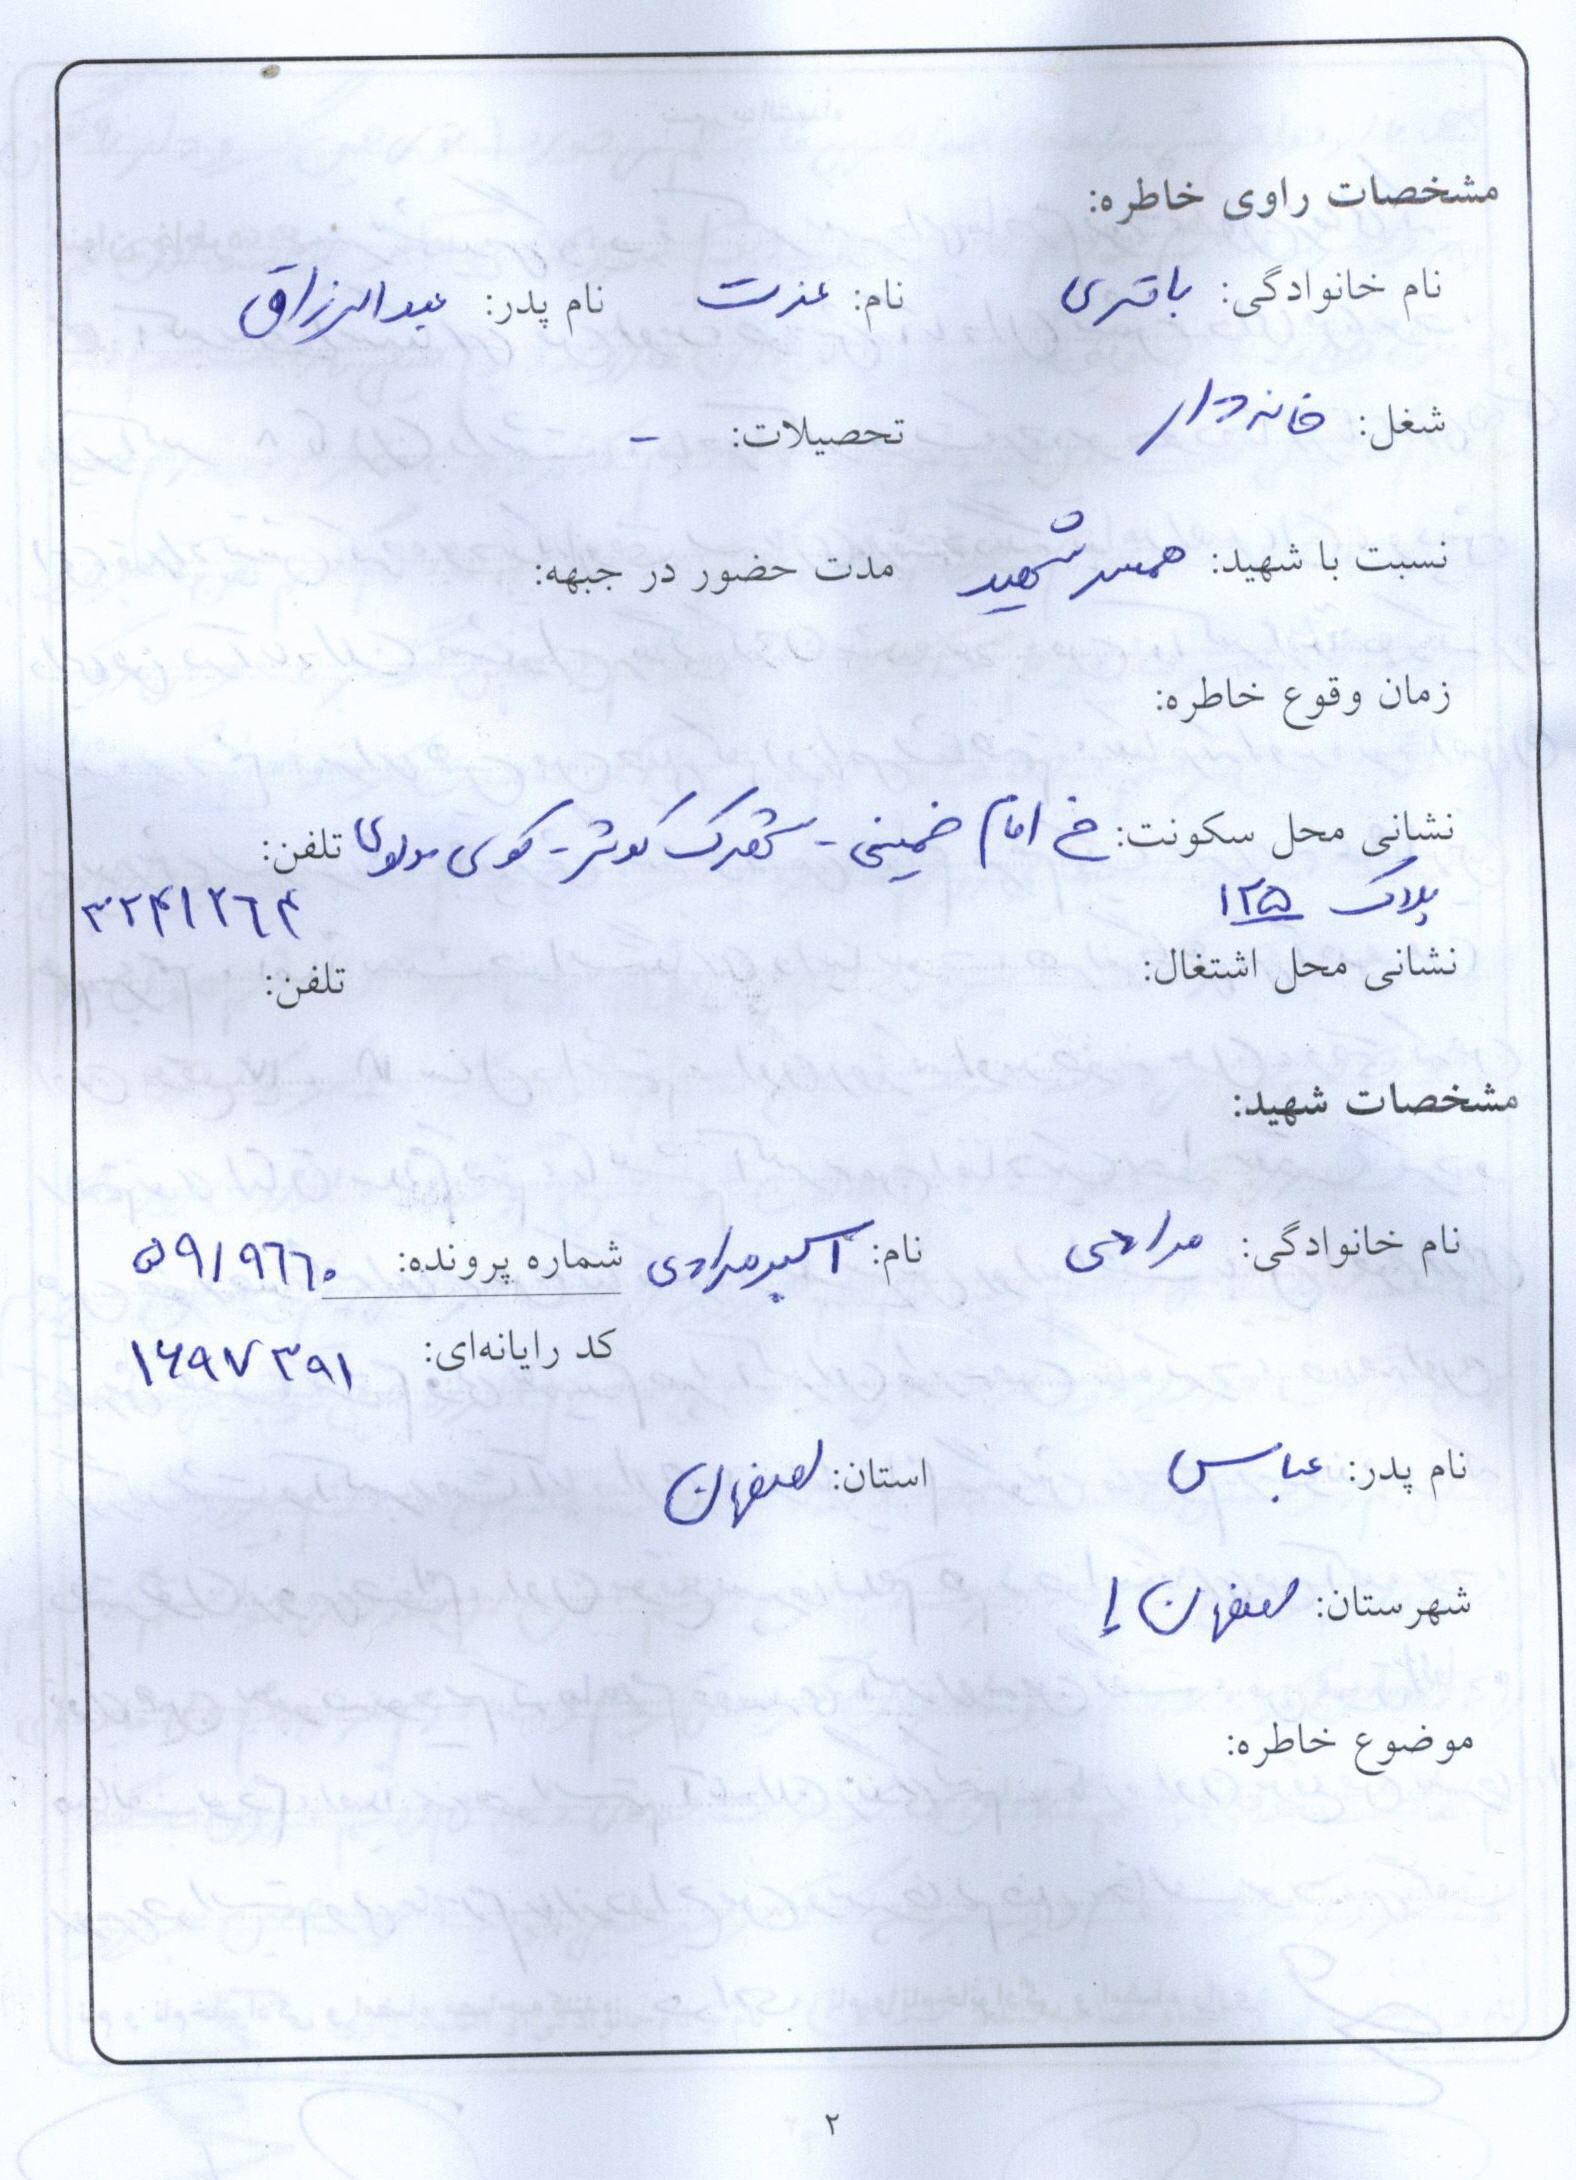 مشخصات راوی خاطره:
نام خانوادگی: باقری نام: عزت نام پدر: عبدالرزاق
شغل: خانه دار تحصیلات: -
نسبت با شهید: همسر شهید مدت حضور در جبهه:
زمان وقوع خاطره:
نشانی محل سکونت: خ امام خمینی - شهرک کوثر - کوی مولوی تلفن:
پلاک ۱۲۵ ۳۲۴۱۲۶۴
نشانی محل اشتغال: تلفن:
مشخصات شهید:
نام خانوادگی: مرادی نام: اسکندر مرادی شماره پرونده: ۵۹/۹۶۶۰
کد رایانه‌ای: ۱۶۹۷۳۹۱
نام پدر: عباس استان: اصفهان
شهرستان: اصفهان ۱
موضوع خاطره:
۲